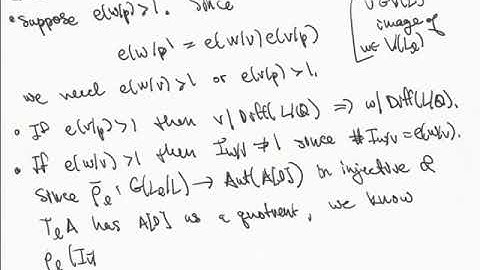 • Suppose e(w/p)>1. Since
e(w/p) = e(w/v)e(v/p)
we need e(w/v)>1 or e(v/p)>1.
image of
w∈V(Lₑ)
• If e(v/p)>1 then v/Diff(L/Q) ⇒ w/Diff(L/Q).
• If e(w/v)>1 then I_w/v ≠ 1 since # I_w/v = e(w/v).
Since ρ̄ₑ: G(Lₑ/L) → Aut(A[ℓ]) is injective &
TₑA has A[ℓ] as a quotient, we know
ρₑ(I